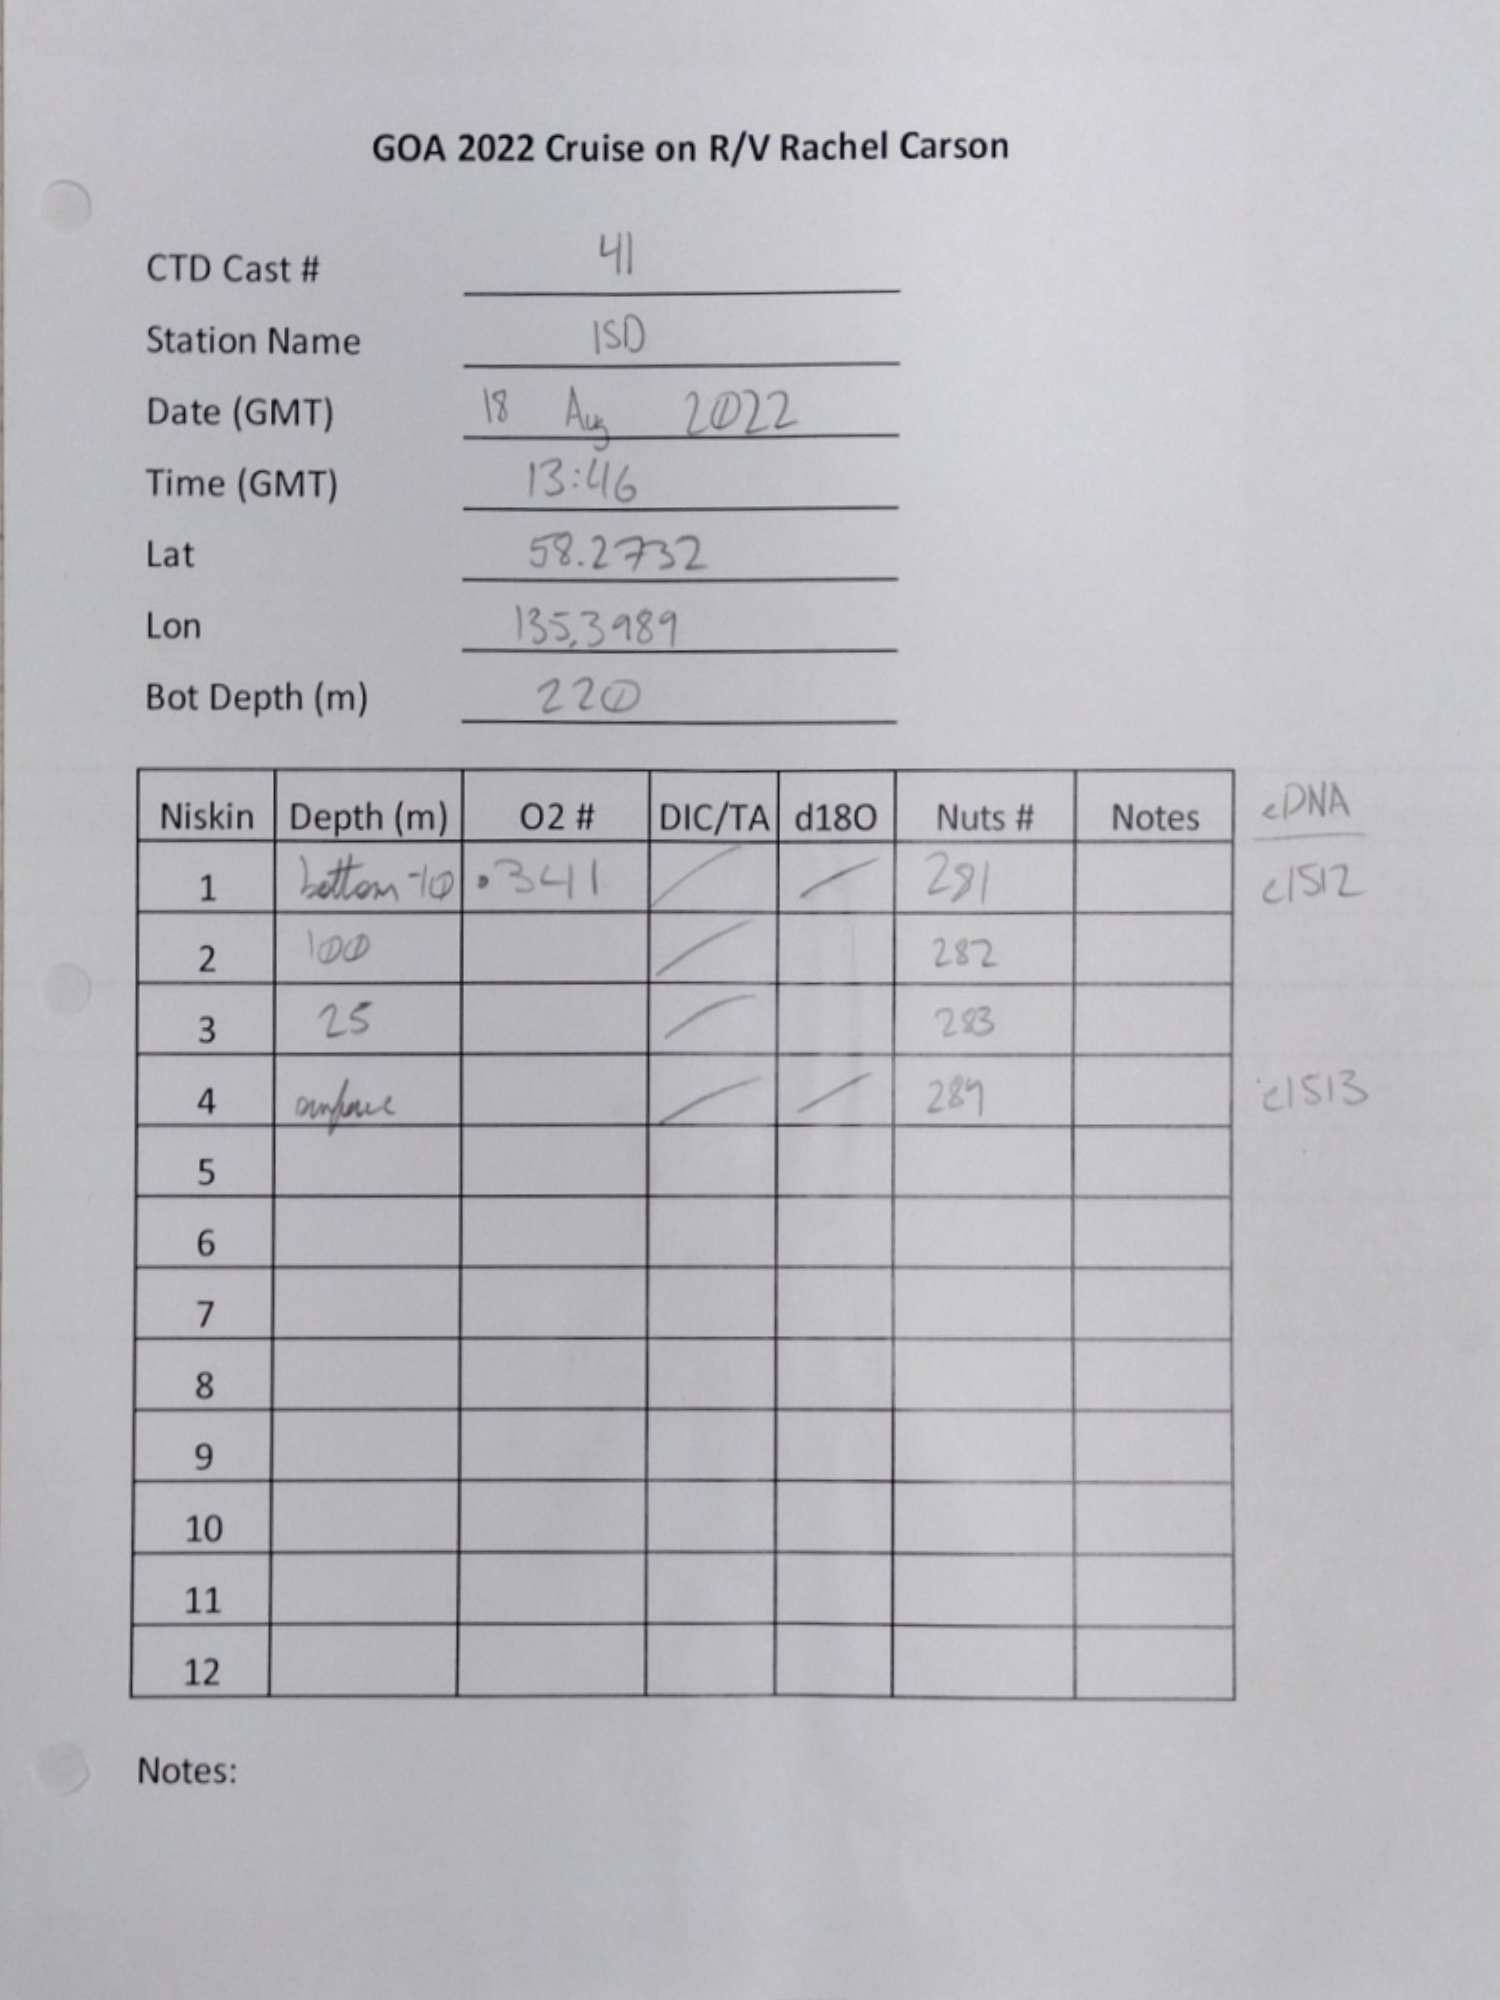 GOA 2022 Cruise on R/V Rachel Carson
CTD Cast # 41
Station Name ISD
Date (GMT) 18 Aug 2022
Time (GMT) 13:46
Lat 58.2732
Lon 135.3989
Bot Depth (m) 220
Niskin Depth (m) O2 # DIC/TA d18O Nuts # Notes eDNA
1 bottom-10 .341 / / 281 e1512
2 100 / 282
3 25 / 283
4 surface / / 284 e1513
5
6
7
8
9
10
11
12
Notes: